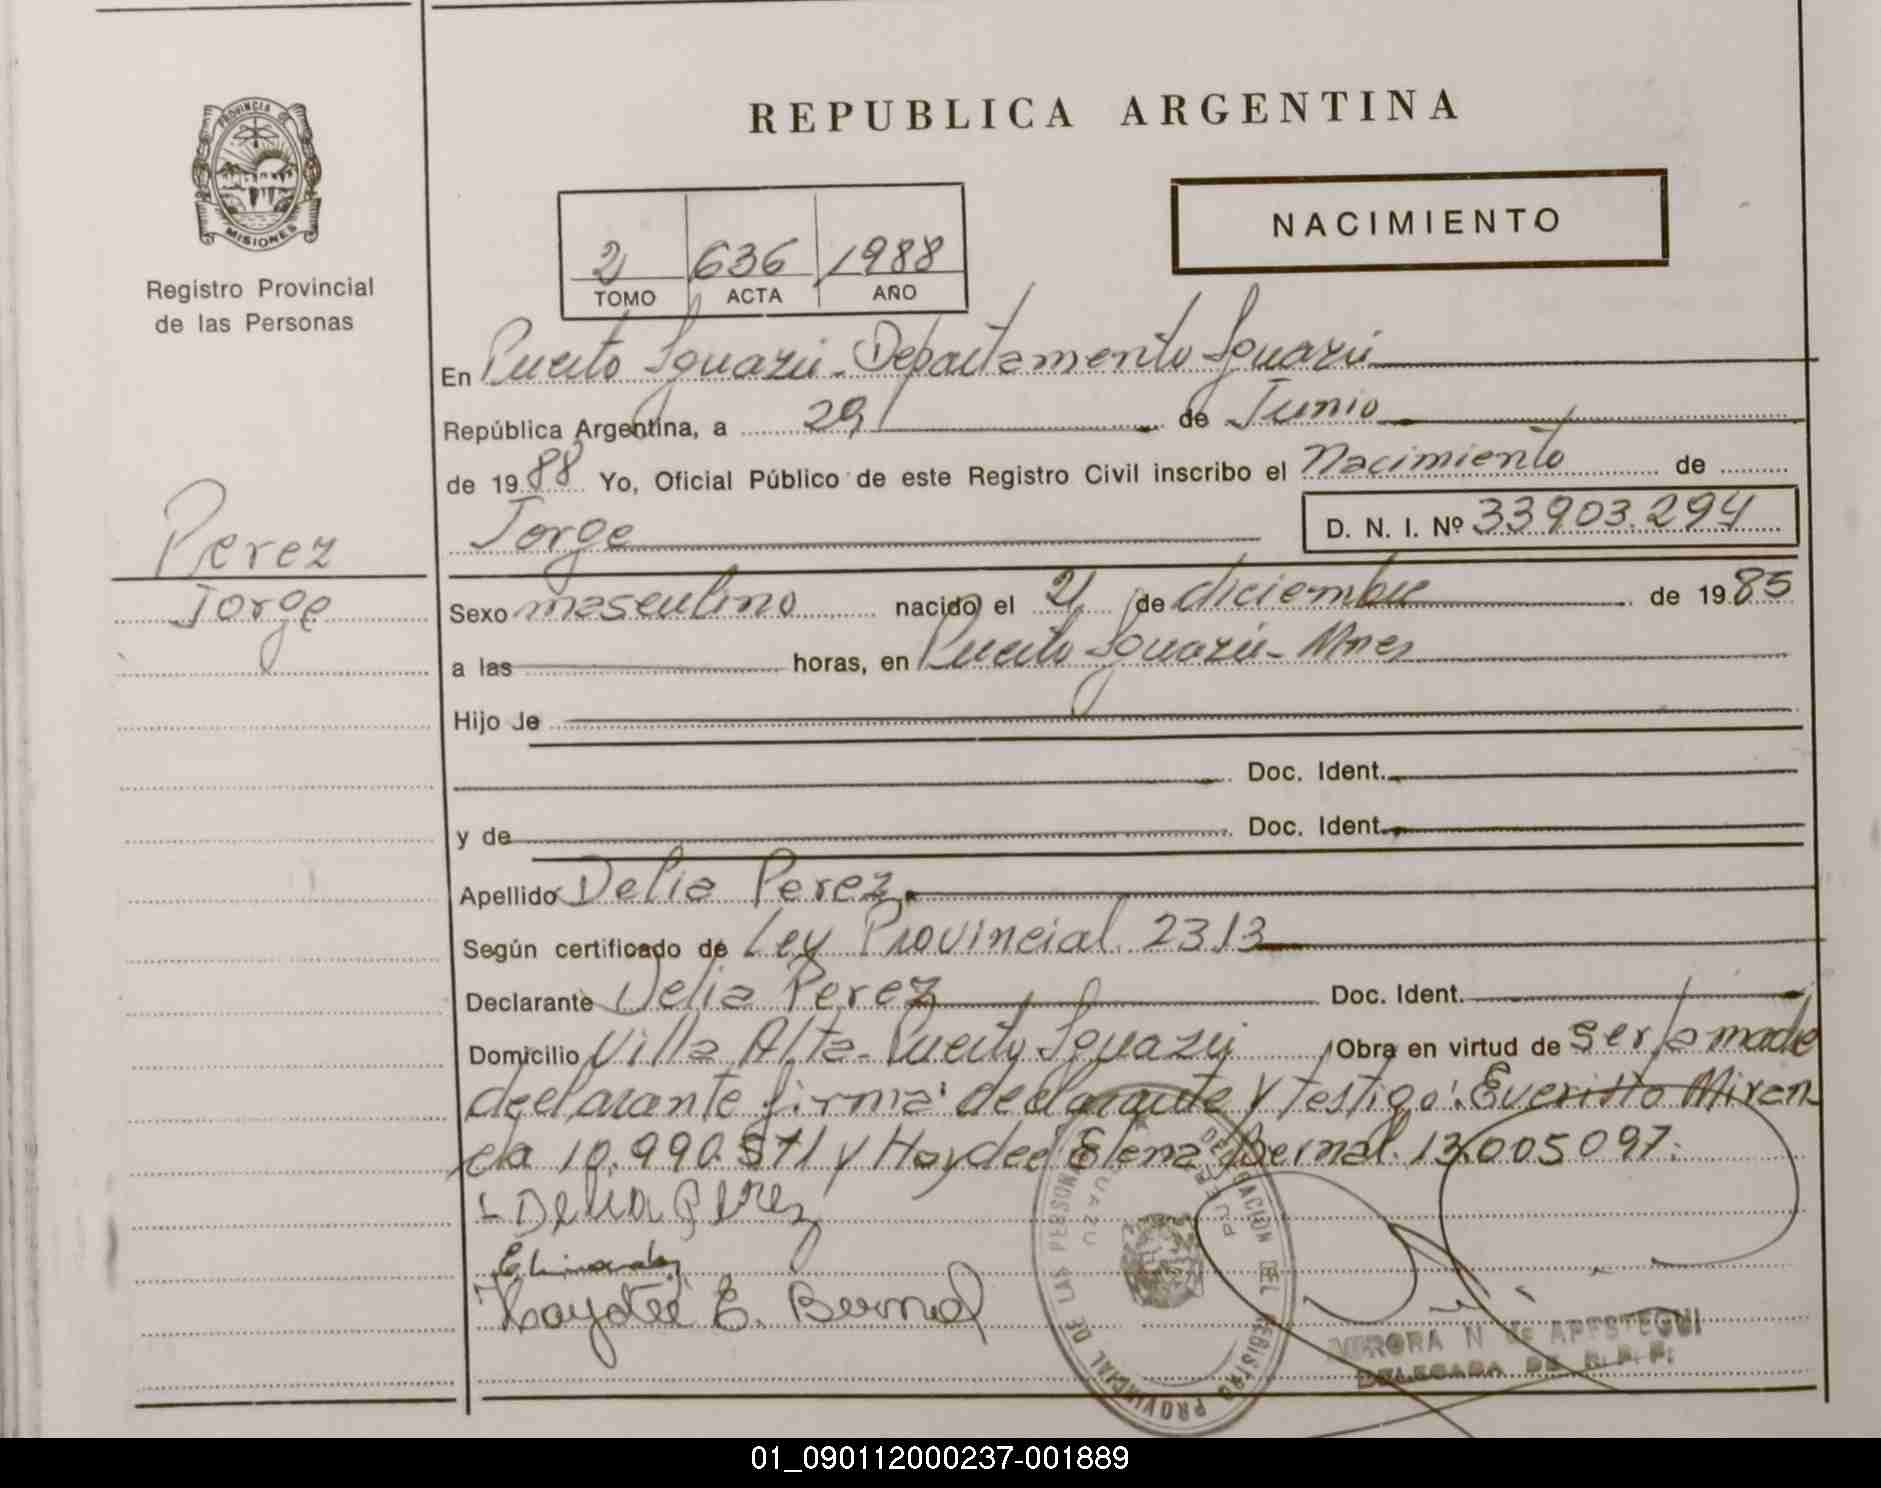 PROVINCIA DE
MISIONES
Registro Provincial
de las Personas
REPUBLICA ARGENTINA
NACIMIENTO
2 636 1988
TOMO ACTA AÑO
En Puerto Iguazú - Departamento Iguazú
República Argentina, a 29 de Junio
de 1988 Yo, Oficial Público de este Registro Civil inscribo el Nacimiento de
Jorge D. N. I. Nº 33903.294
Perez
Jorge
Sexo masculino nacido el 21 de diciembre de 1985
a las horas, en Puerto Iguazú - Mnes
Hijo de
Doc. Ident.
y de Doc. Ident.
Apellido Delia Perez
Según certificado de Ley Provincial 2313
Declarante Delia Perez Doc. Ident.
Domicilio Villa Alta - Puerto Iguazú Obra en virtud de ser la madre
declarante firma: declarante y testigo: Everisto Miran
da 10.990.571 y Haydee Elena Bernal 13.005097.
Delia Perez
Haydeé E. Bernal
DELEGACION DEL REGISTRO PROVINCIAL DE LAS PERSONAS
PUERTO IGUAZU
AURORA N de APESTEGUI
DELEGADA DE R. P. P.
01_090112000237-001889